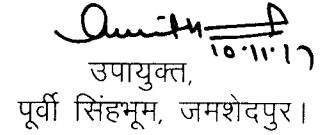 10.11.17
उपायुक्त,
पूर्वी सिंहभूम, जमशेदपुर।